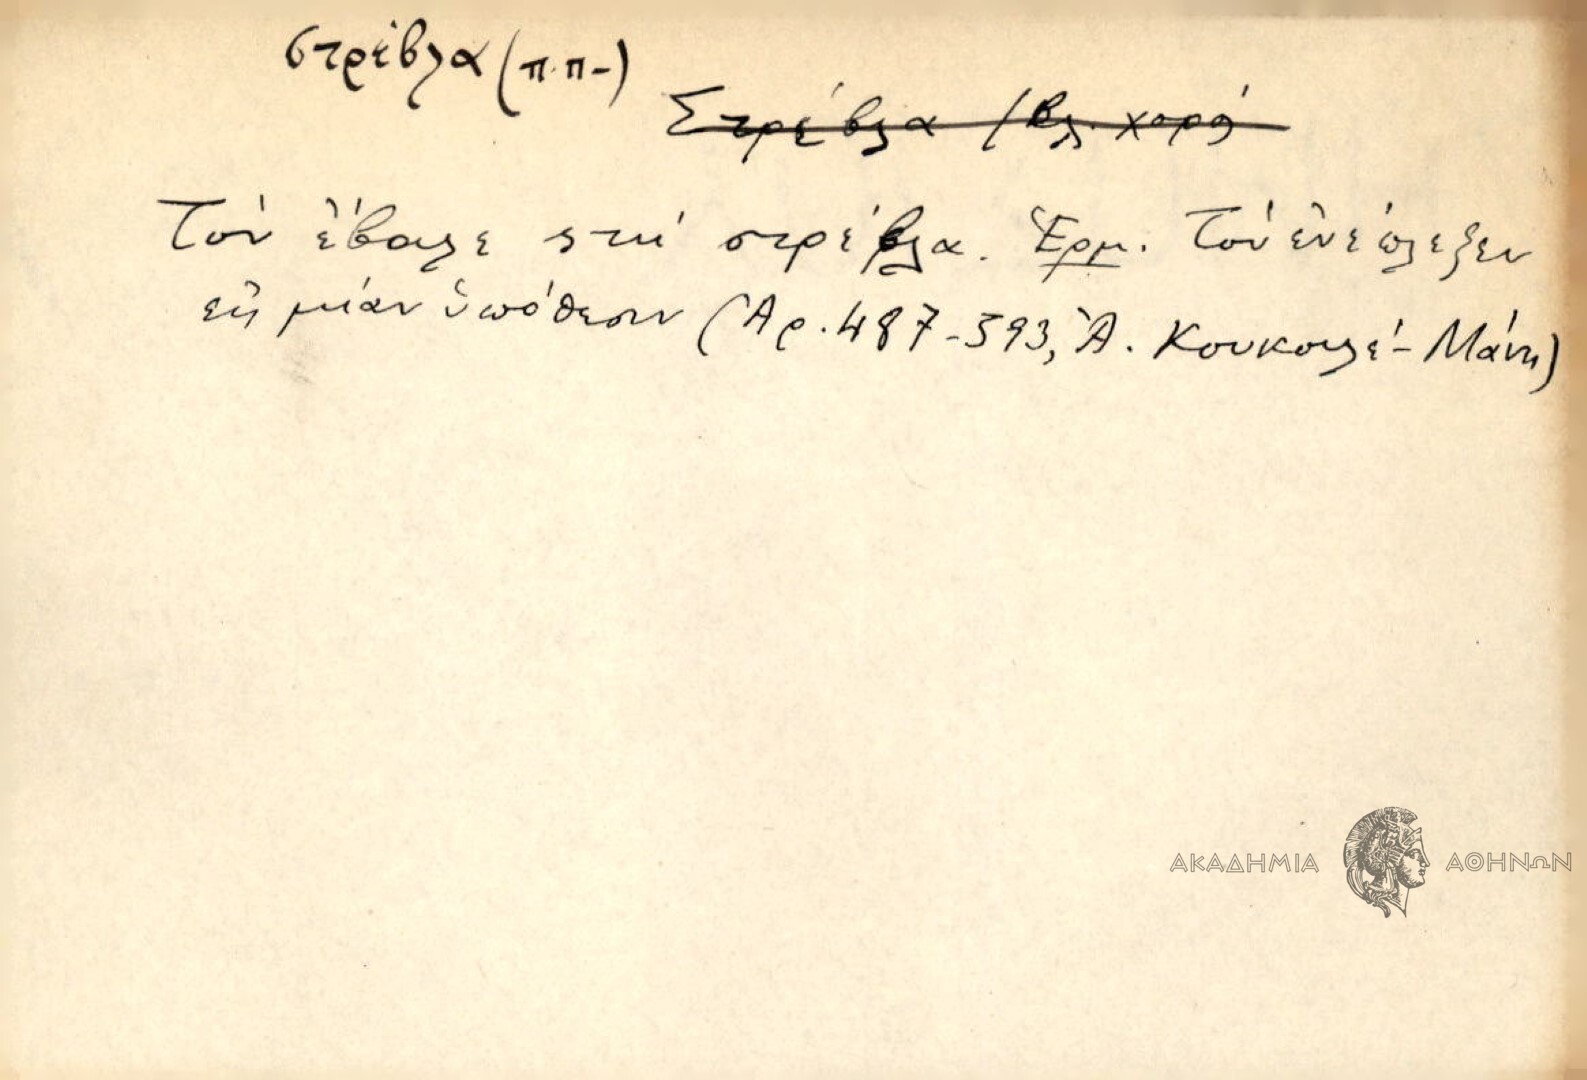 στρέβλα (π.π-)
Στρέβλα (βλ. χορό
Τὸν ἔβαλε στὴ στρέβλα. Ἑρμ. Τὸν ἐνέπλεξεν
εἰς μίαν ὑπόθεσιν (Ἀρ. 487-593, Ἀ. Κουκουλέ - Μάνη)
ΑΚΑΔΗΜΙΑ ΑΘΗΝΩΝ